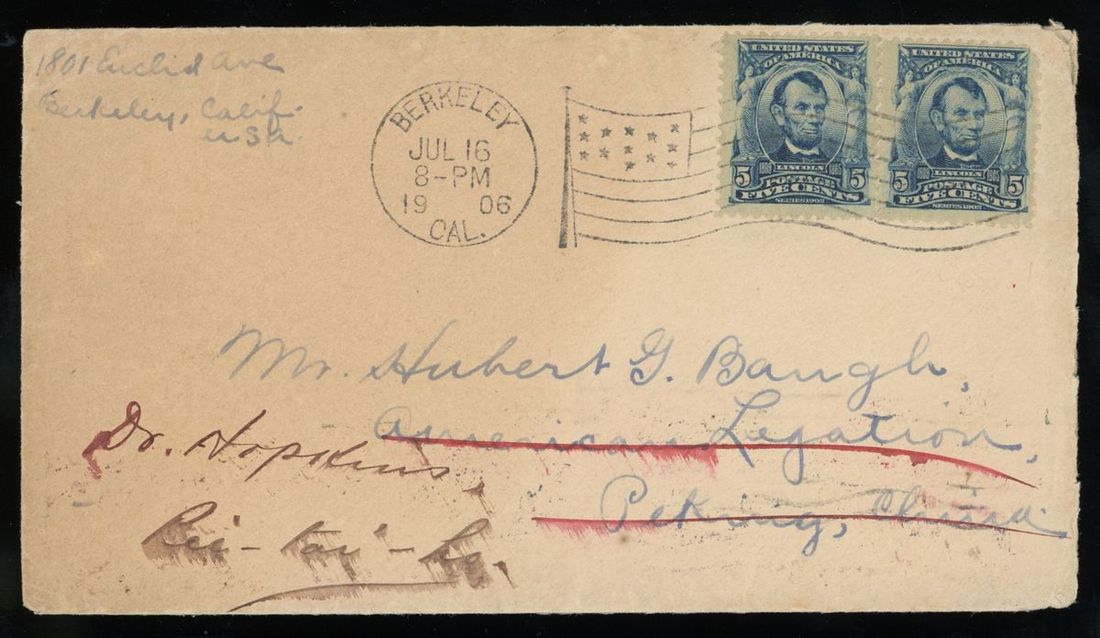 1801 Euclid Ave
Berkeley, Calif.
USA.
BERKELEY
JUL 16
8-PM
19 06
CAL.
UNITED STATES
OF AMERICA
1809 LINCOLN 1865
5 POSTAGE 5
FIVE CENTS
SERIES 1902
UNITED STATES
OF AMERICA
1809 LINCOLN 1865
5 POSTAGE 5
FIVE CENTS
SERIES 1902
Mr. Hubert G. Baugh,
American Legation,
Peking, China.
Dr. Hopkins,
Pei-tai-ho.